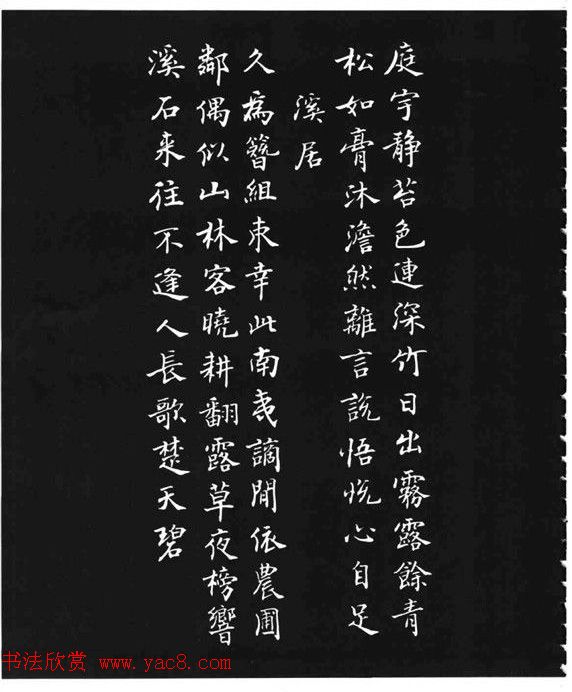 庭宇静苔色連深竹日出霧露餘青
松如膏沐澹然離言說悟悅心自足
溪居
久為簪組束幸此南夷謫閒依農圃
鄰偶似山林客曉耕翻露草夜榜響
溪石来往不逢人長歌楚天碧
书法欣赏 www.yac8.com